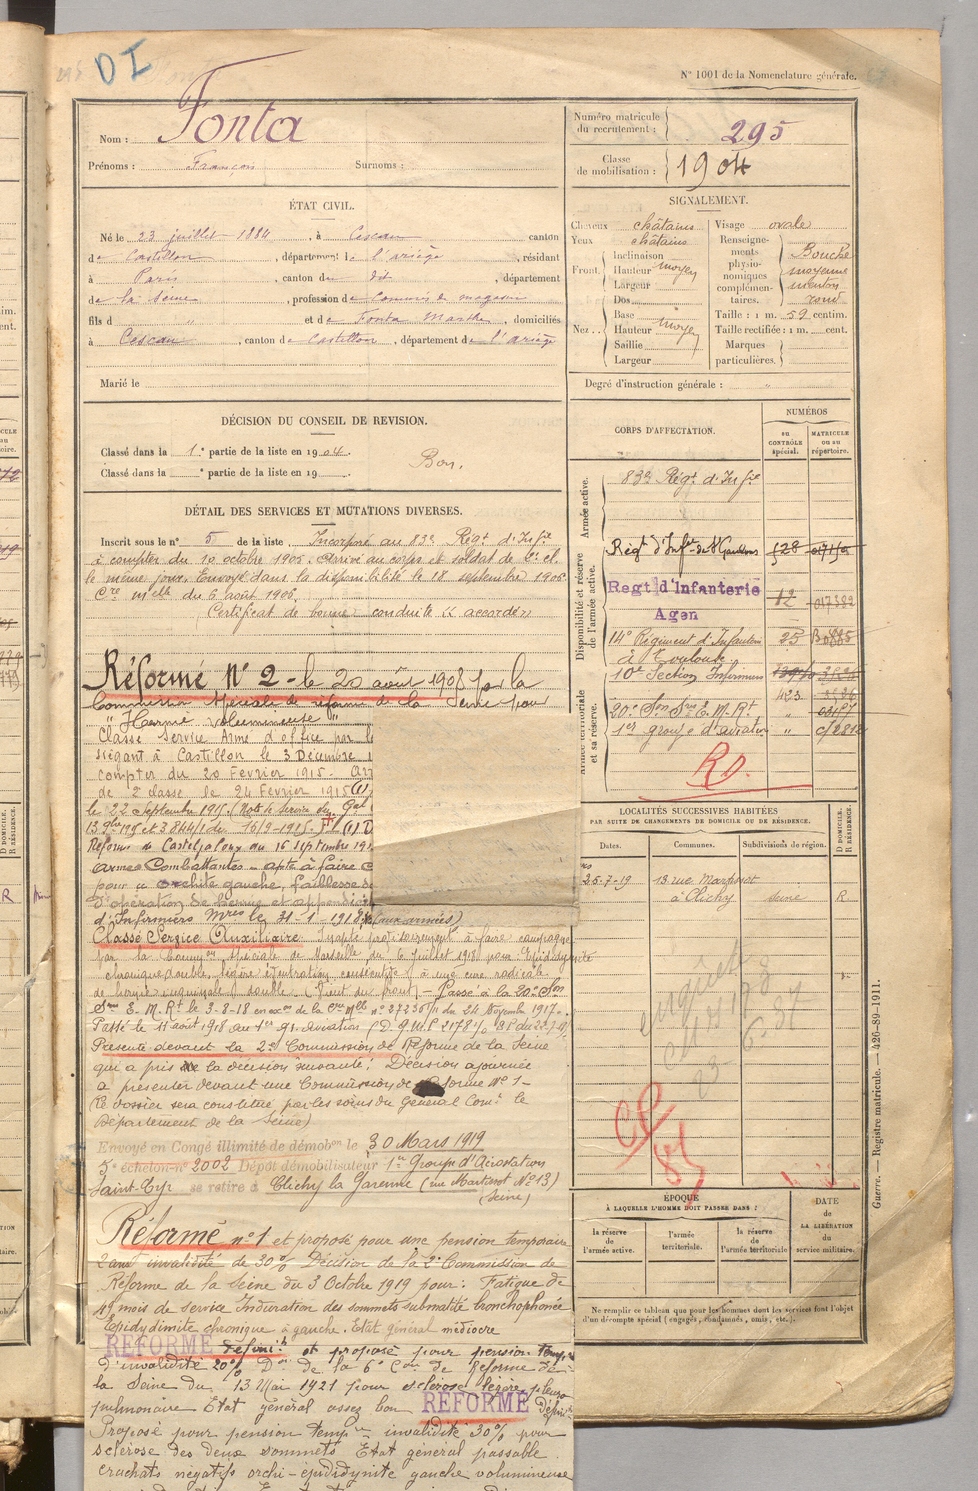 DI
N° 1001 de la Nomenclature générale.
Nom : Fonta
Prénoms : François Surnoms :
Numéro matricule du recrutement : 295
Classe de mobilisation : 1904
ÉTAT CIVIL.
Né le 23 juillet 1884, à Cescau canton
de Castillon, département de l'ariège, résidant
à Paris, canton de dd, département
de la Seine, profession de Commis de magasin
fils d " et de Fonta Marthe, domiciliés
à Cescau, canton de Castillon, département de l'ariège
Marié le
SIGNALEMENT.
Cheveux châtains
Yeux châtains
Front. Inclinaison
Hauteur moyen
Largeur
Nez. Dos
Base
Hauteur moyen
Saillie
Largeur
Visage ovale
Renseignements physionomiques complémentaires. Bouche moyenne menton rond
Taille : 1 m. 59 centim.
Taille rectifiée : 1 m. cent.
Marques particulières.
Degré d'instruction générale : "
DÉCISION DU CONSEIL DE REVISION.
Classé dans la 1e partie de la liste en 1904.
Bon.
Classé dans la e partie de la liste en 19
DÉTAIL DES SERVICES ET MUTATIONS DIVERSES.
Inscrit sous le n° 5 de la liste. Incorporé au 83e Régt d'Infie
à compter du 10 octobre 1905. Arrivé au corps et soldat de 2e cl.
le même jour. Envoyé dans la disponibilité le 18 septembre 1906
Cre melle du 6 août 1906.
Certificat de bonne conduite "accordé"
Réformé N° 2 - le 20 août 1908 par la
Commission spéciale de réforme de la Seine pour
"Hernie volumineuse"
Classé Service Armé d'office par l
siégant à Castillon le 3 Décembre
compter du 20 Février 1915. Arr
de 2e classe le 24 Février 1915 (1)
le 22 Septembre 1915. (Note de service du Gal
13 et 3844/ du 16/9-1915.
Réforme de Casteljaloux du 16 septembre 191
armes Combattantes - apte à faire c
pour orchite gauche, faiblesse
d'opération de hernie et appendi
d'Infirmiers Mres le 31-1-1918 (aux armées)
Classé Service Auxiliaire. Inapte provisoirement à faire campagne
par la Common spéciale de Marseille du 6 juillet 1918 pour Epididymite
chronique double, légère éventration consécutive à une cure radicale
de hernie inguinale double. (Vient du front) - Passé à la 20e Son
Sre E. M. Rt le 3-8-18 en exon de la Cre Mlle n° 27236 /1 du 24 Novembre 1917.
Passé le 11 août 1918 au 1er gr. aviation
Présenté devant la 2e Commission de Réforme de la Seine
qui a pris la décision suivante : Décision ajournée
à présenter devant une Commission de Réforme N° 1 -
(le dossier sera constitué par les soins du Général Comt le
Département de la Seine)
Envoyé en Congé illimité de démobon le 30 Mars 1919
5e échelon n° 2002 Dépôt démobilisateur 1er Groupe d'Aérostation
Saint-Cyr se retire à Clichy la Garenne (rue Martissot N° 13)
(Seine)
Réformé n° 1 et proposé pour une pension temporaire
2 ans invalidité de 30% Décision de la 2e Commission de
Réforme de la Seine du 3 Octobre 1919 pour : Fatigue de
49 mois de service Induration des sommets submatité bronchophonée
Epidydimite chronique à gauche. Etat général médiocre
RÉFORMÉ définit et proposé pour pension temp
d'invalidité 20% Don de la 6e Con de Réforme de
la Seine du 13 Mai 1921 pour sclérose légère pleuro
pulmonaire Etat général assez bon RÉFORMÉ Définit
Proposé pour pension tempre invalidité 30% pour
sclérose des deux sommets Etat général passable
crachats négatifs orchi-épididymite gauche volumineuse
CORPS D'AFFECTATION.
NUMÉROS
au CONTRÔLE spécial.
MATRICULE ou au répertoire.
Armée active.
83e Régt d'Infie
Disponibilité et réserve de l'armée active.
Régt d'Infie de St Gaudens 528 01719
Regt d'Infanterie Agen 12 017382
14e Régiment d'Infanterie à Toulouse 25
10e Section Infirmiers
Armée territoriale et sa réserve.
423
20e Son Sre E. M. Rt "
1er groupe d'aviation " c/2812
RD.
LOCALITÉS SUCCESSIVES HABITÉES
PAR SUITE DE CHANGEMENTS DE DOMICILE OU DE RÉSIDENCE.
Dates. Communes. Subdivisions de région. D DOMICILE. R RÉSIDENCE.
25-7-19 13 rue Martissot
à Clichy Seine R
enquête
23-6-37
ÉPOQUE
À LAQUELLE L'HOMME DOIT PASSER DANS :
la réserve de l'armée active.
l'armée territoriale.
la réserve de l'armée territoriale
DATE DE LA LIBÉRATION du service militaire.
Ne remplir ce tableau que pour les hommes dont les services font l'objet
d'un décompte spécial (engagés, condamnés, omis, etc.).
Guerre. — Registre matricule. — 426-89-1911.